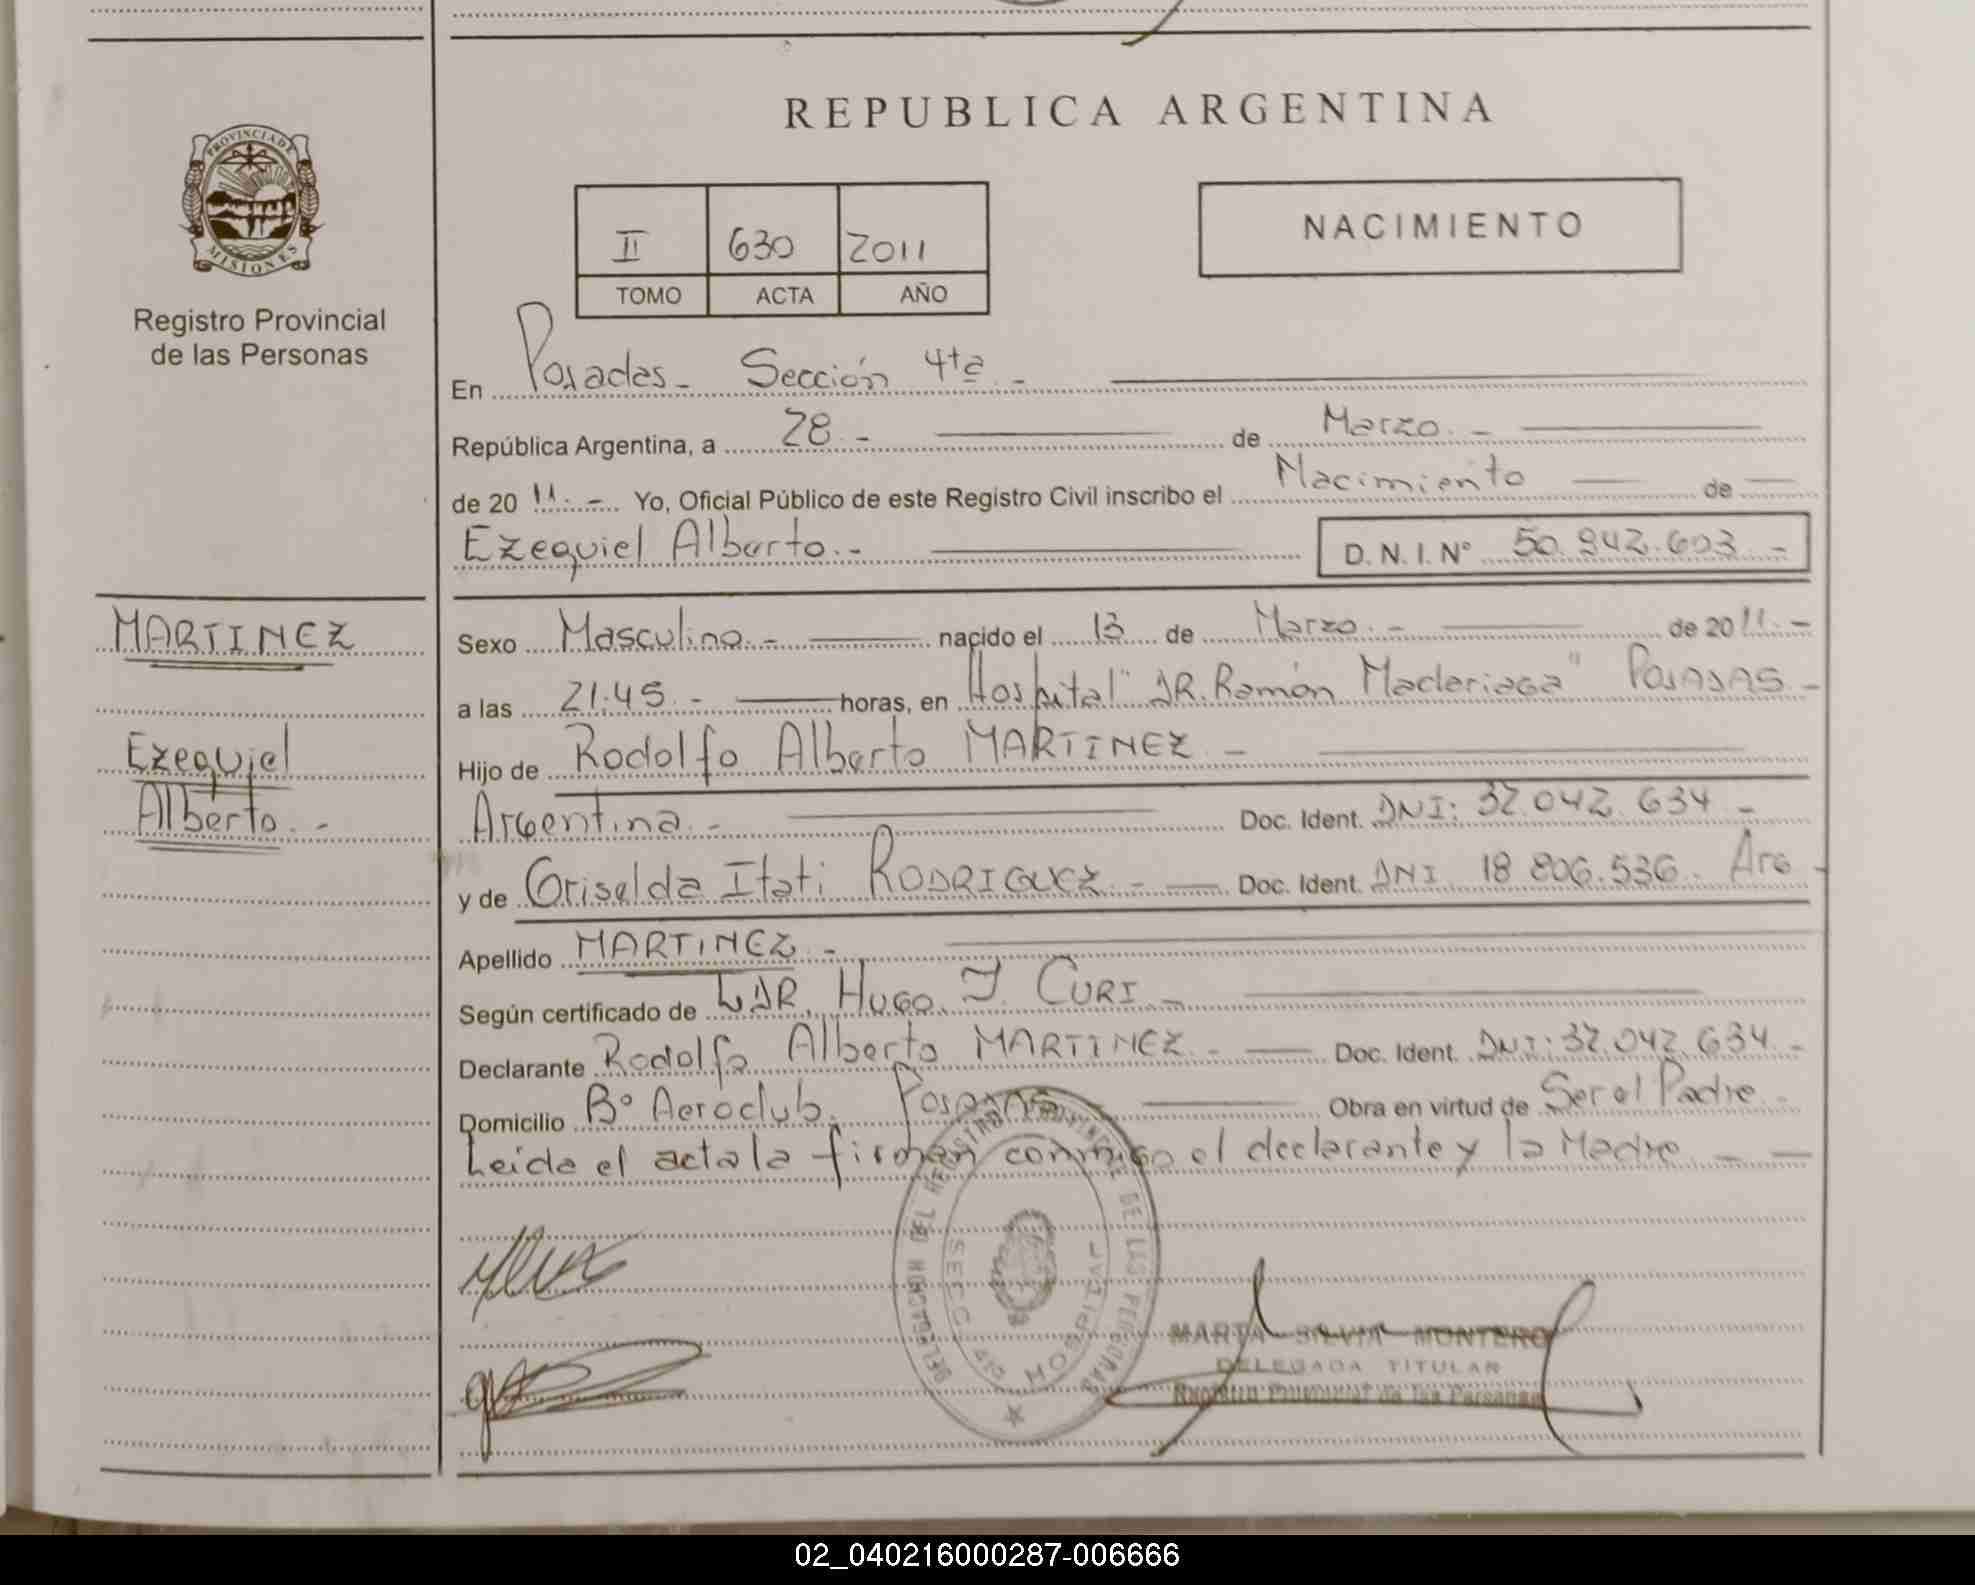 REPUBLICA ARGENTINA
PROVINCIA DE
MISIONES
Registro Provincial
de las Personas
II 630 2011
TOMO ACTA AÑO
NACIMIENTO
En Posadas - Sección 4ta. -
República Argentina, a 28. - de Marzo. -
de 20 11. - Yo, Oficial Público de este Registro Civil inscribo el Nacimiento de
Ezequiel Alberto. - D. N. I. N° 50.942.603 -
MARTINEZ
Ezequiel
Alberto. -
Sexo Masculino. - nacido el 13 de Marzo. - de 2011. -
a las 21:45. - horas, en Hospital "DR. Ramón Madariaga" POSADAS -
Hijo de Rodolfo Alberto MARTINEZ -
Argentina. - Doc. Ident. DNI: 32.042.634 -
y de Griselda Itati RODRIGUEZ. - Doc. Ident. DNI 18 806.536. Arg -
Apellido MARTINEZ -
Según certificado de DR. HUGO J. CURI -
Declarante Rodolfo Alberto MARTINEZ - Doc. Ident. DNI: 32.042.634. -
Domicilio B° Aeroclub. POSADAS - Obra en virtud de Ser el Padre -
Leida el acta la firman conmigo el declarante y la Madre - -
DELEGACION DEL REGISTRO PROVINCIAL DE LAS PERSONAS
SECC. 4ta HOSPITAL
MARTA SILVIA MONTERO
DELEGADA TITULAR
Registro Provincial de las Personas
02_040216000287-006666